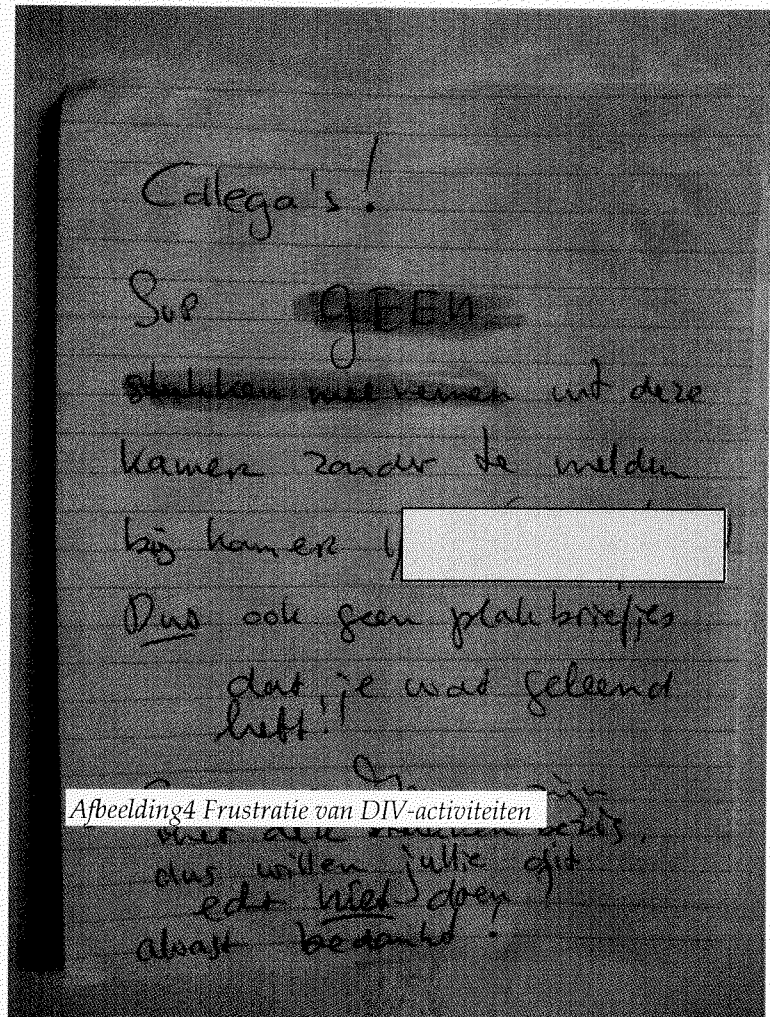 Collega's!
Svp GEEN
stukken meenemen uit deze
kamer zonder te melden
bij kamer
Dus ook geen plakbriefjes
dat je wat geleend
hebt!!
zijn
Afbeelding4 Frustratie van DIV-activiteiten
met deze stukken bezig,
dus willen jullie dit
echt niet doen
alvast bedankt.